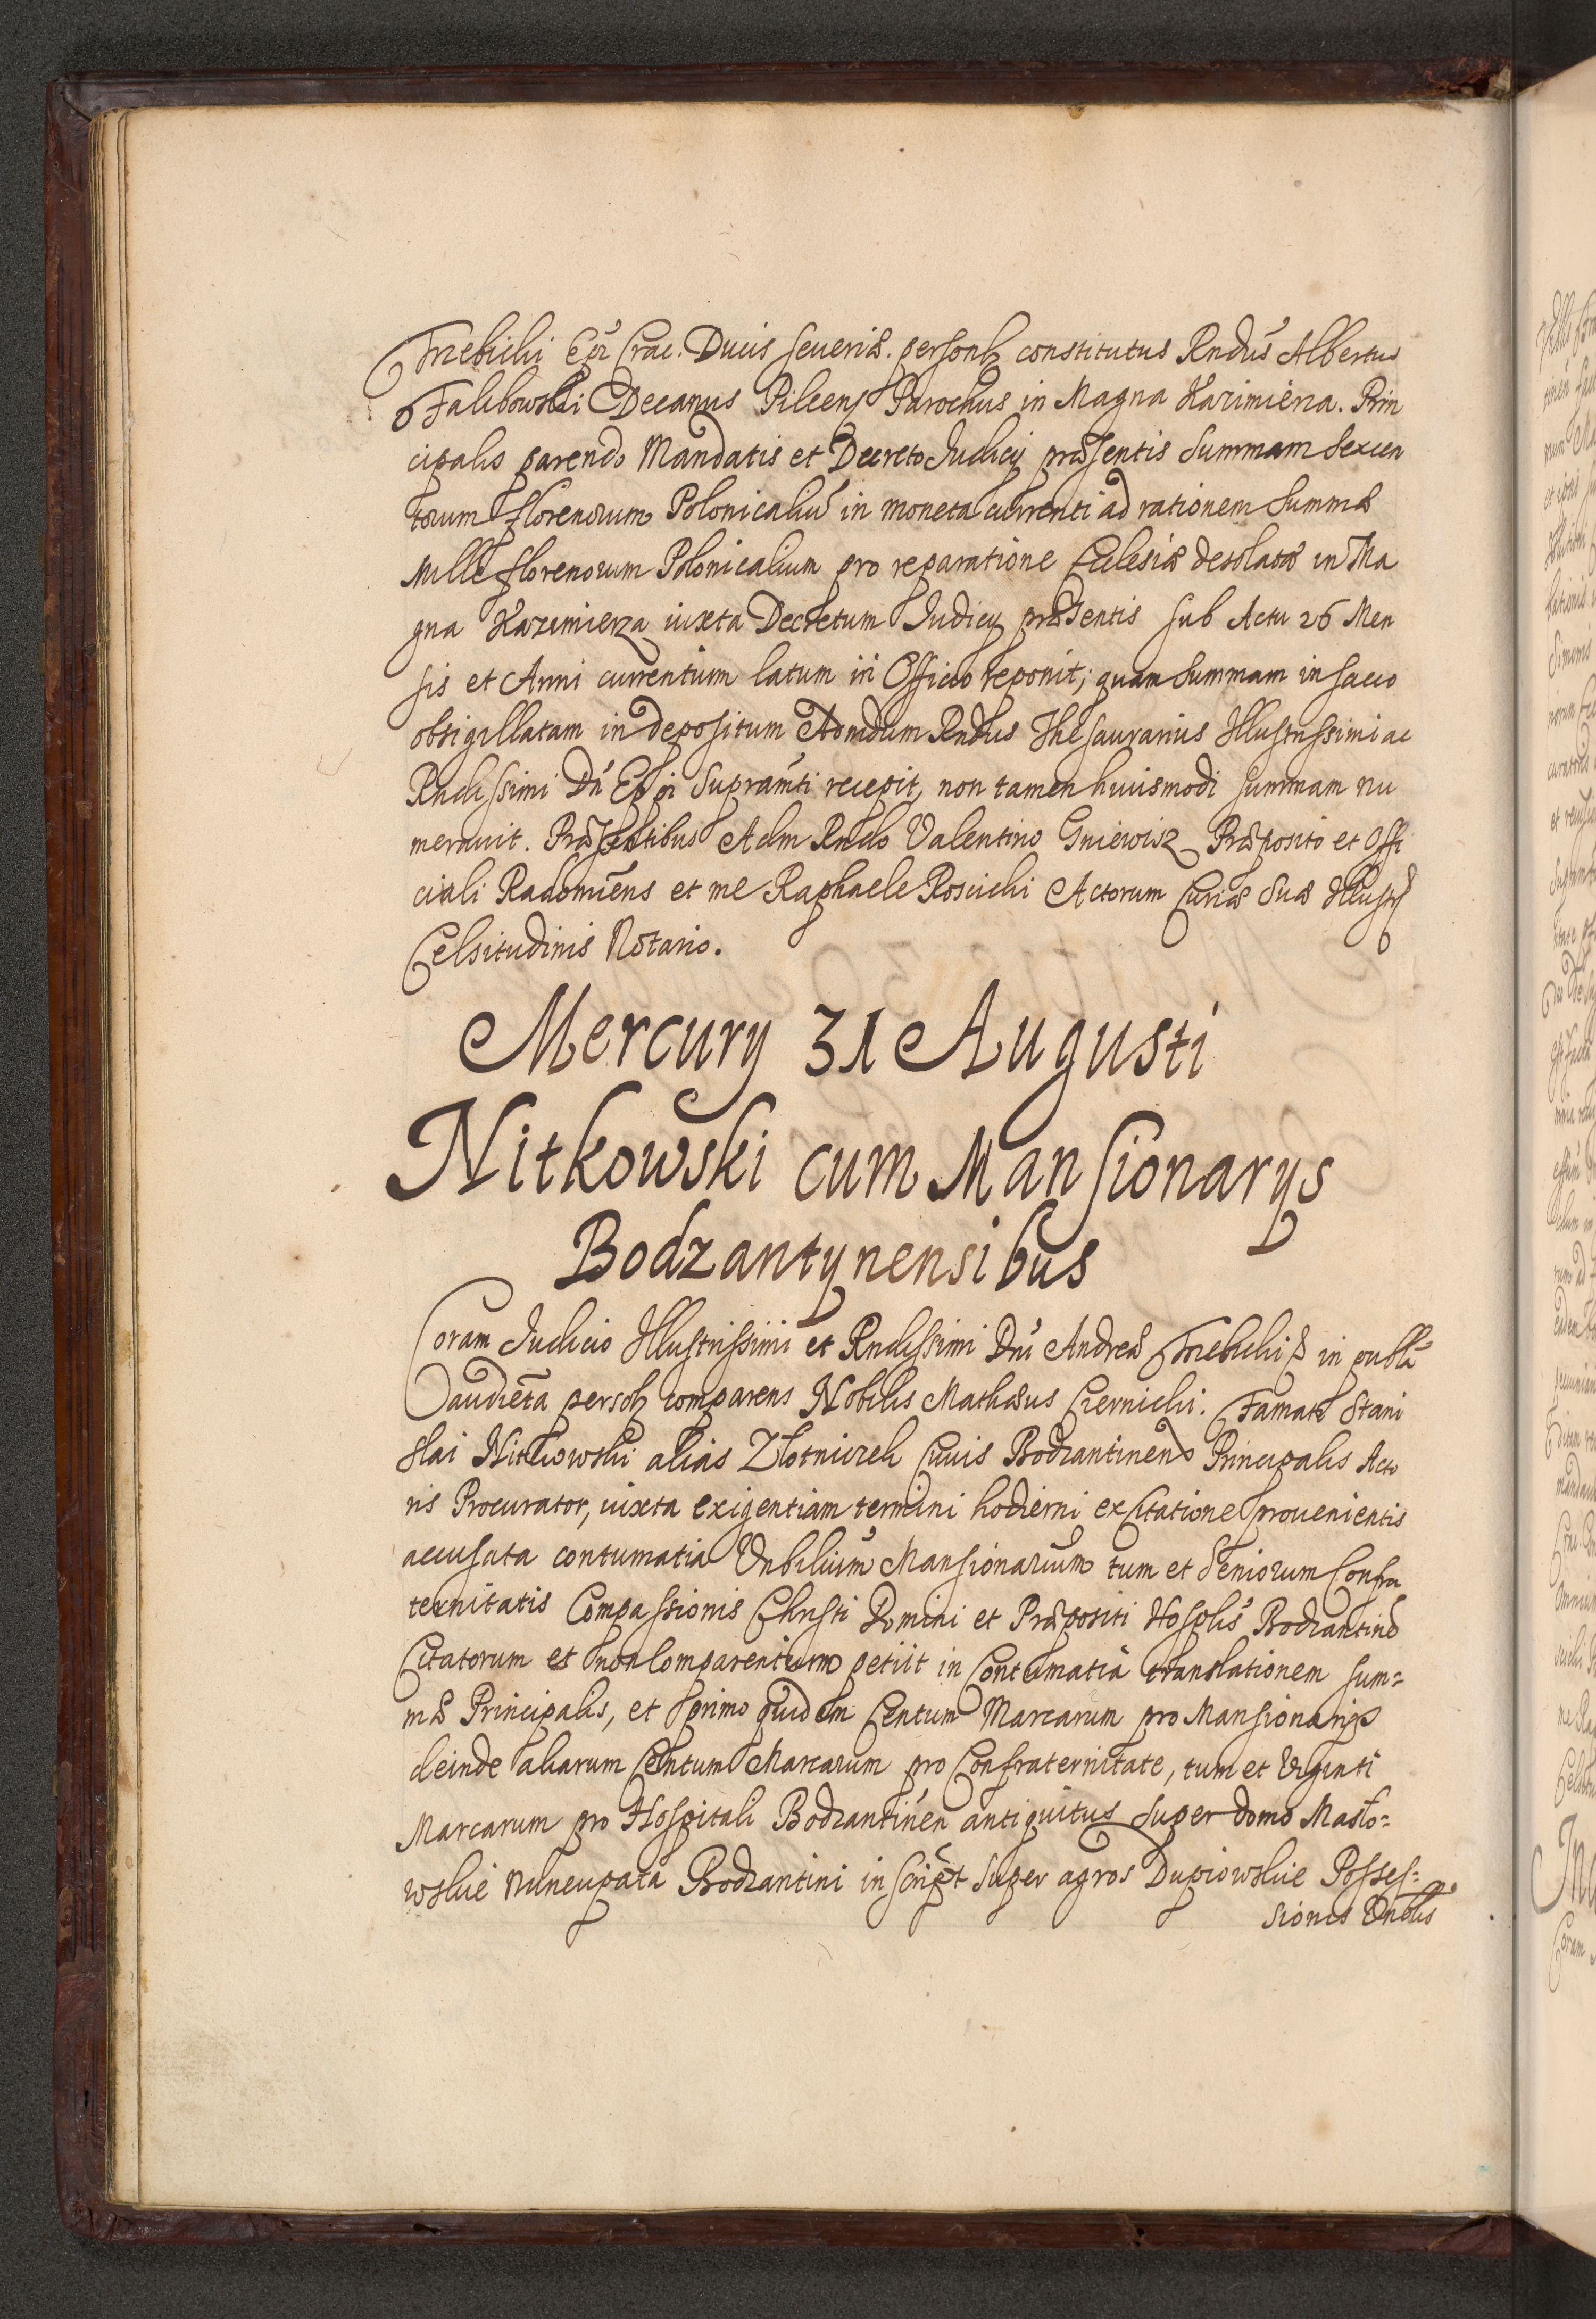 Trzebicki Epi Crac. Ducis Seueriæ. personlr constitutus Rndus Albertus
Falibowski Decanus Pilcens Parochus in Magna Kazimierza. Prin
cipalis parendo Mandatis et Decreto Judicij præsentis Summam Sexcen
torum florenorum Polonicaliu in moneta currenti ad rationem Summæ
Mille florenorum Polonicalium pro reparatione Ecclesiæ desolatæ in Ma
gna Kazimierza iuxta Decretum Judicij præsentis sub Actu 26 Men
sis et Anni currentium latum in Officio reponit; quam Summam in sacco
obsigillatam in depositum Admdum Rndus Thesaurarius Illustrissimi ac
Rndissimi Dni Epi Supramti recepit, non tamen huiusmodi summam nu
merauit. Præsentibus Adm Rndo Valentino Gniewisz Præposito et Offi
ciali Radomiens et me Raphaele Roscicki Actorum Curiæ Suæ Illustr
Celsitudinis Notario.
Mercury 31 Augusti
Nitkowski cum Mansionarys
Bodzantynensibus
Coram Judicio Illustrissimi et Rndissimi Dni Andreæ Trzebicki in publa
audieta persolr comparens Nobilis Mathæus Czernicki. Famati Stani
slai Nitkowski alias Zlotniczek Ciuis Bodzantinen Principalis Acto
ris Procurator, iuxta exigentiam termini hodierni ex Citatione prouenientis
accusata contumatia Vnbilium Mansionarium tum et Seniorum Confra
ternitatis Compassionis Christi Domini et Præpositi Hosplis Bodzantine
Citatorum et non Comparentium petiit in Contumatia translationem sum=
mæ Principalis, et primo quidem Centum Marcarum pro Mansionarijs
deinde aliarum Centum Marcarum pro Confraternitate, tum et Viginti
Marcarum pro Hospitali Bodzantinen antiquitus super domo Masło=
wskie nuncupata Bodzantini inscript super agros Dupiowskie Posses=
sionis Vnblis